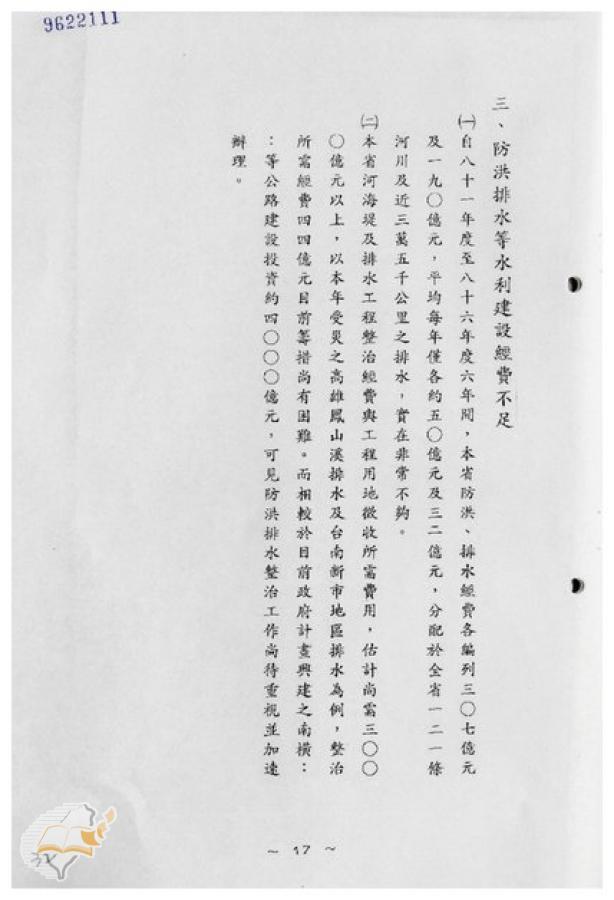 9622111
三、防洪排水等水利建設經費不足
㈠自八十一年度至八十六年度六年間，本省防洪、排水經費各編列三〇七億元
及一九〇億元，平均每年僅各約五〇億元及三二億元，分配於全省一二一條
河川及近三萬五千公里之排水，實在非常不夠。
㈡本省河海堤及排水工程整治經費與工程用地徵收所需費用，估計尚需三〇〇
〇億元以上，以本年受災之高雄鳳山溪排水及台南新市地區排水為例，整治
所需經費四四億元目前籌措尚有困難。而相較於目前政府計畫興建之南橫：
：等公路建設投資約四〇〇〇億元，可見防洪排水整治工作尚待重視並加速
辦理。
~ 17 ~